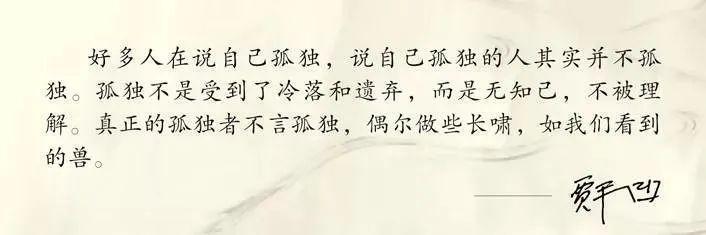 好多人在说自己孤独，说自己孤独的人其实并不孤
独。孤独不是受到了冷落和遗弃，而是无知己，不被理
解。真正的孤独者不言孤独，偶尔做些长啸，如我们看到
的兽。
——贾平凹